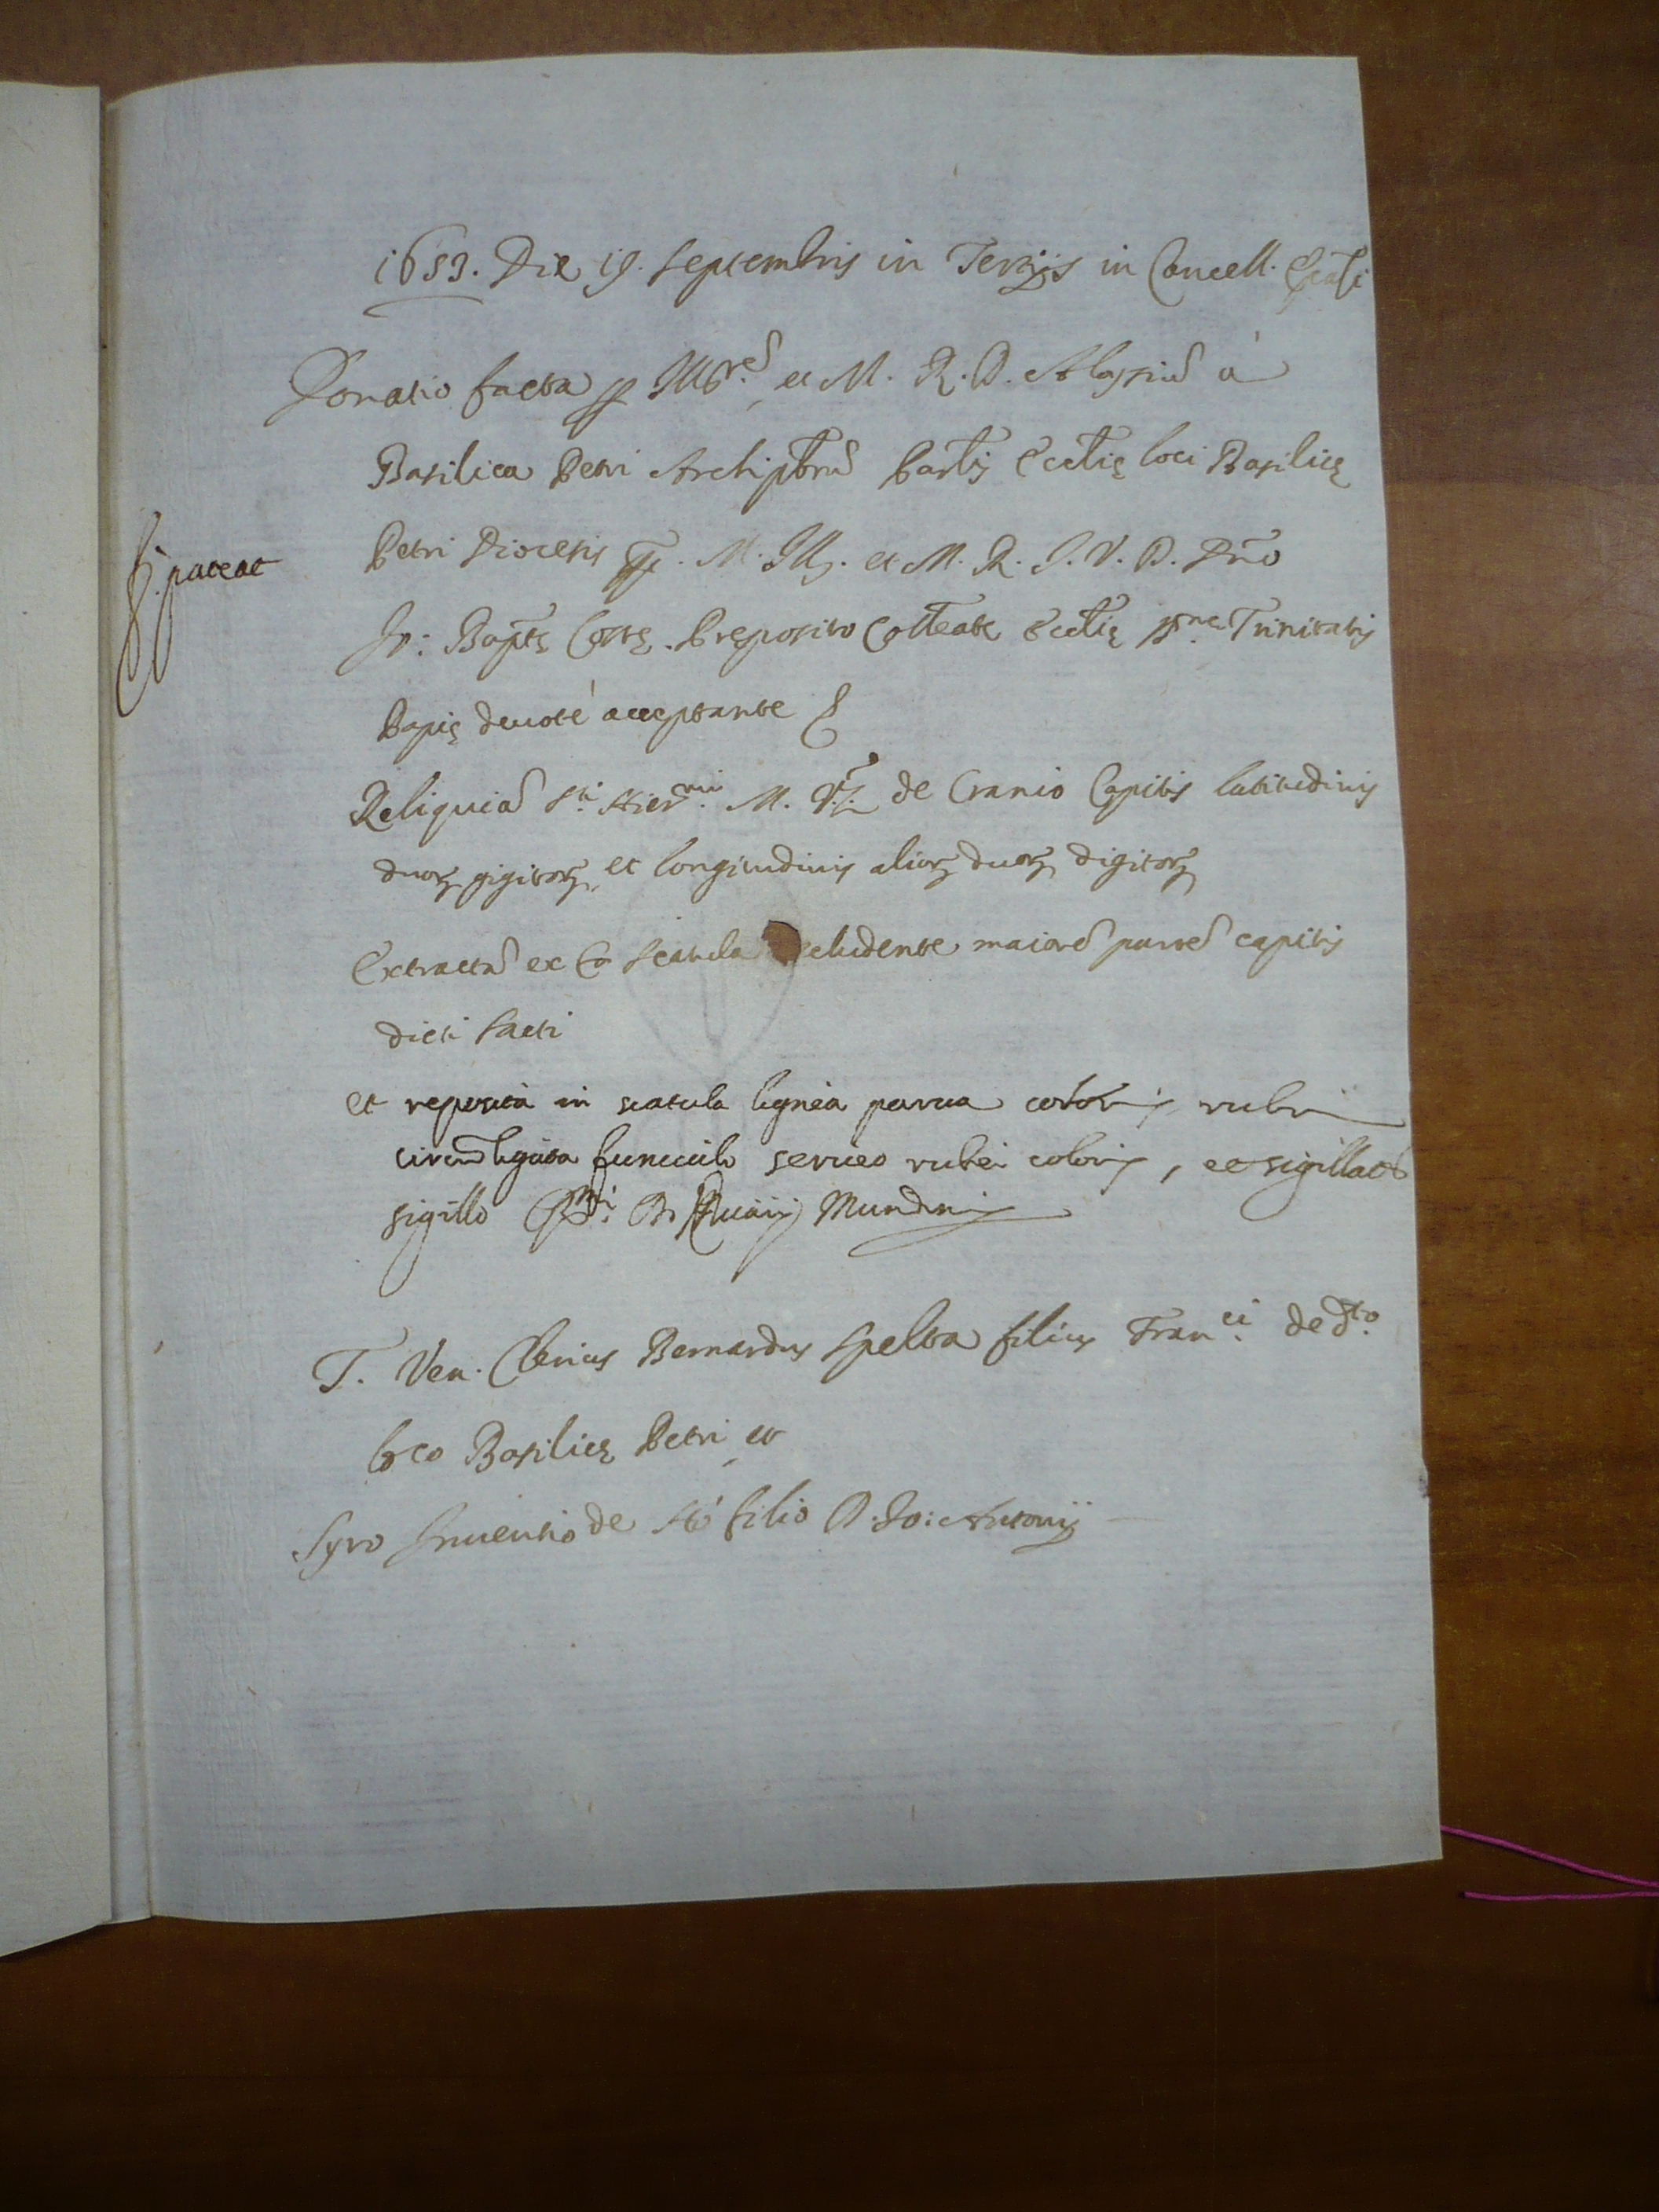 1653. Die 19. Septembris in Terzijs in Cancell. Ep̃ali
Donatio facta p Ill.re et M. R. D. Aloysiũ à
Basilica Petri Archipbrũ Parlis Ecclię loci Basilicę
Petri Diocesis Pp. M. Ill. et M. R. J. V. D. Dño
fr. pateat
Jo: Baptę Costę Pręposito Colleatę Ecclię ss.mę Trinitatis
Papię deuotè acceptante
Reliquiã S.ti M. de Cranio Capitis latitudinis
duor̃ gigitor̃ et longitudinis alior̃ duor̃ digitor̃
Extractã ex Ca Scatula cludente maiorẽ partẽ capitis
dicti Sacti
et reposita in scatula lignea parua coloris rubri
circũligata funiculo sericeo rubei coloris, et sigillata
sigillo D. Mundini
T. Ven. Clericus Bernardus Spelta filius Fran.ci de d.to
loco Basilicę Petri et
Syro Inuentio de filio D. Jo: Antonij